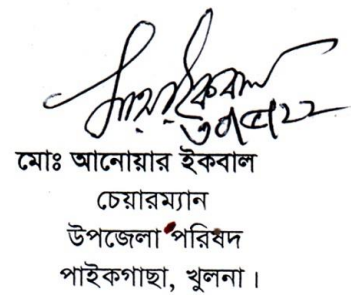 মোঃ আনোয়ার ইকবাল
চেয়ারম্যান
উপজেলা পরিষদ
পাইকগাছা, খুলনা।